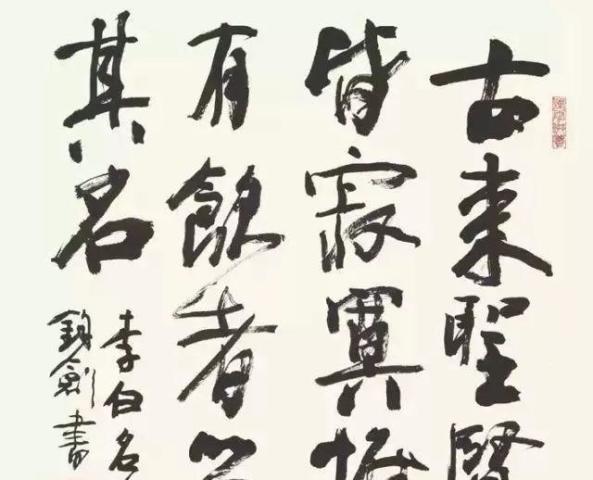 古来聖賢
皆寂寞惟
有飲者
其名
李白名
鈞劍書